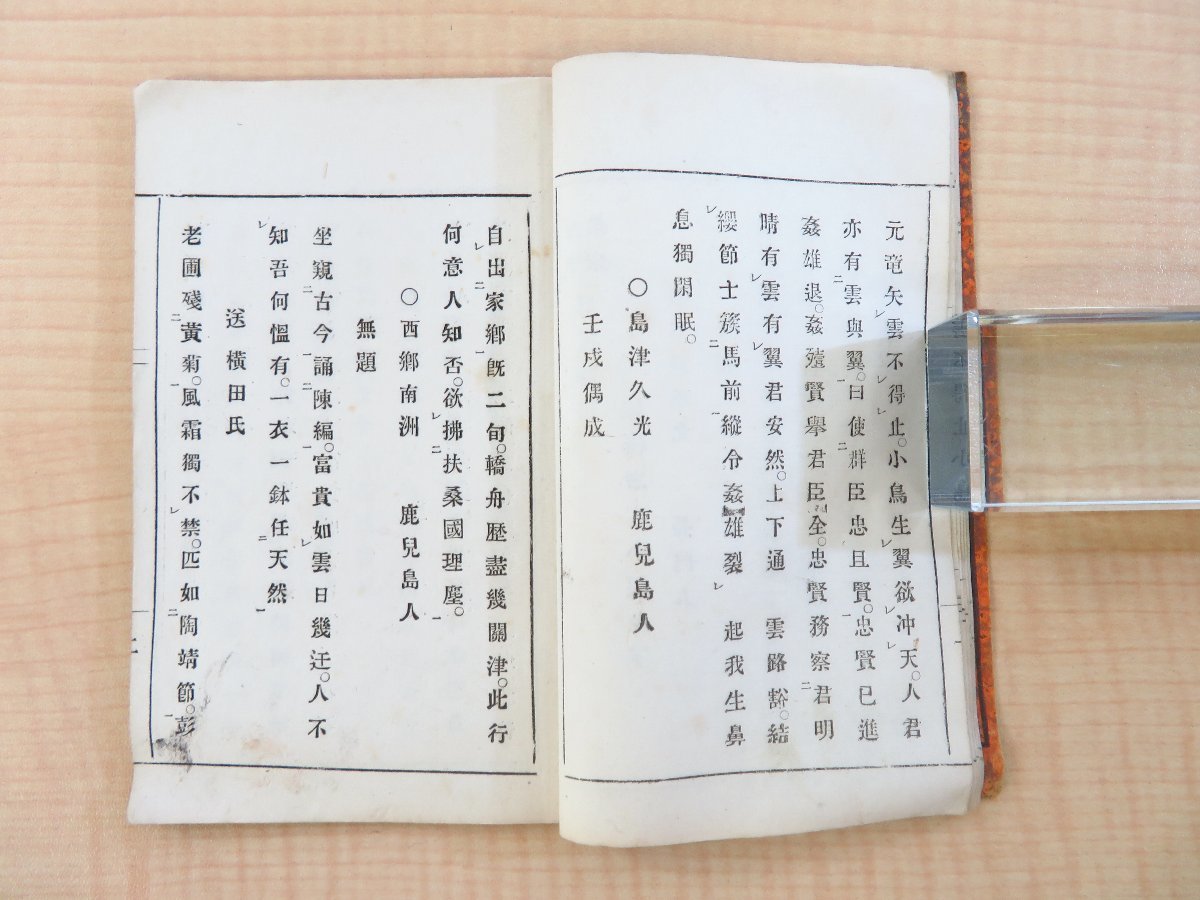 元竜矢雲不得止。小鳥生翼欲冲天。人君
亦有雲與翼。曰使群臣忠且賢。忠賢已進
姦雄退。姦殪賢擧君臣全。忠賢務察君明
晴有雲有翼君安然。上下通 雲路谿。結
纓節士簇馬前縱令姦雄裂 起我生鼻
息獨閑眠。
〇島津久光 鹿兒島人
壬戌偶成
自出家鄉既二旬。轎舟歷盡幾關津。此行
何意人知否。欲拂扶桑國理塵。
〇西鄉南洲 鹿兒島人
無題
坐窺古今誦陳編。富貴如雲日幾迁。人不
知吾何慍有。一衣一鉢任天然
送橫田氏
老圃殘黃菊。風霜獨不禁。匹如陶靖節。彭